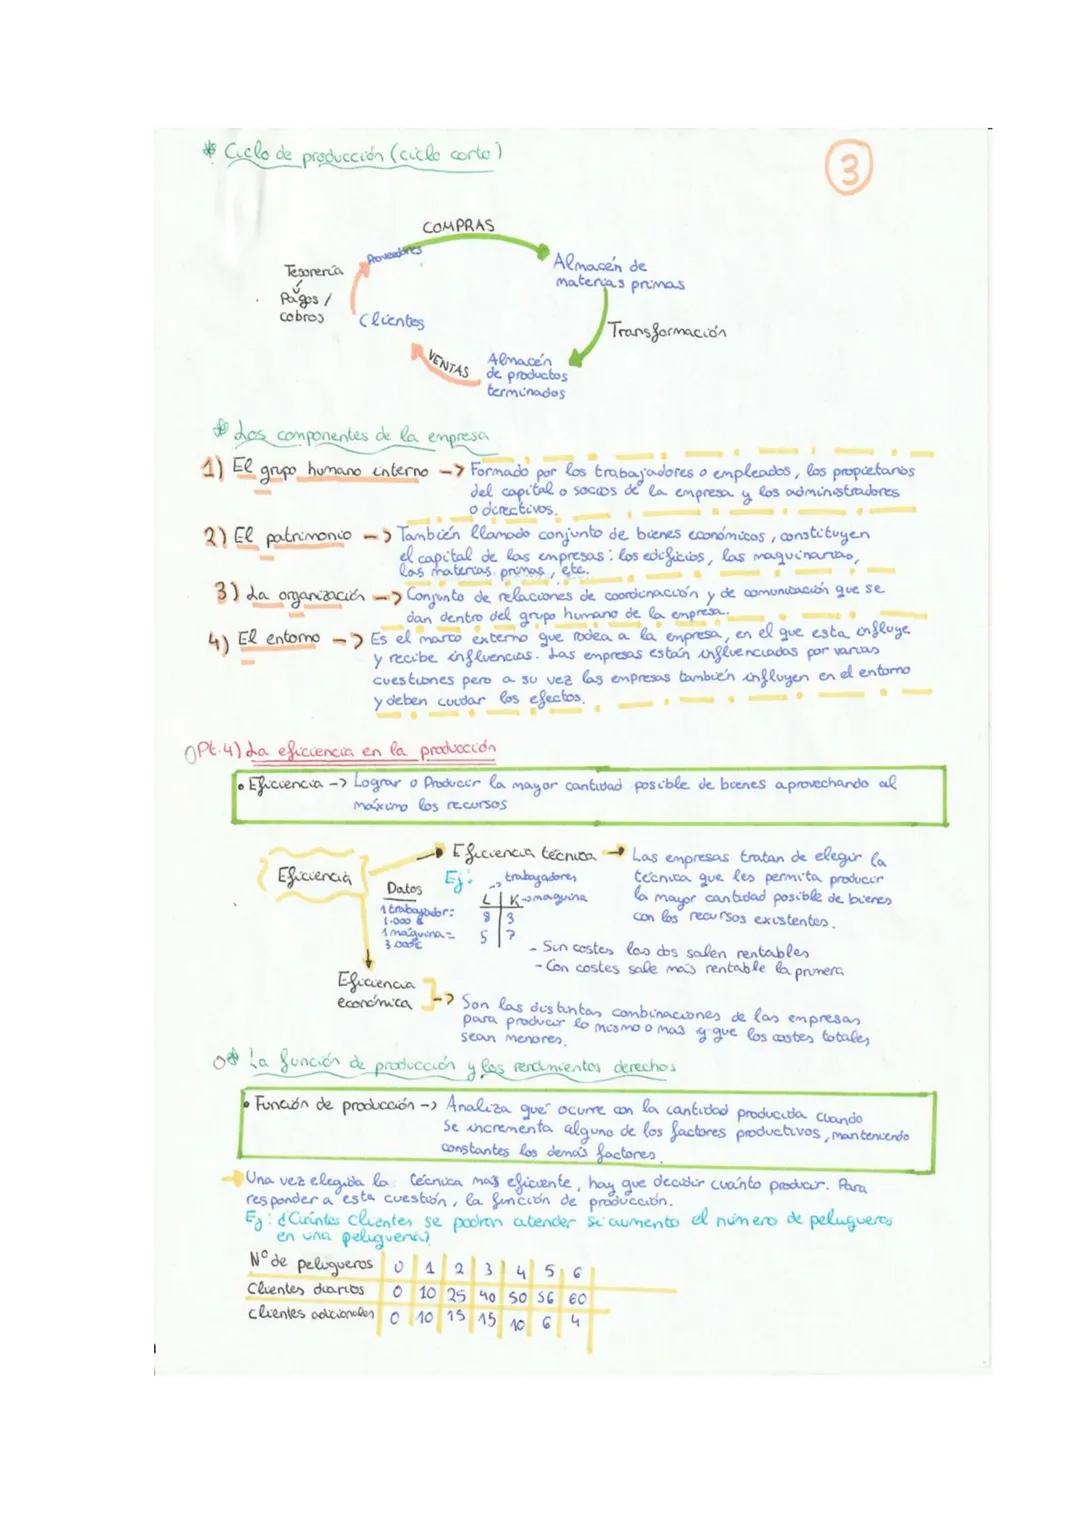 * Ciclo de producción (ciclo corto)
3
COMPRAS
Proveedores
Almacén de
materias primas
Tesorería
Pagos /
cobros
Clientes
Transformación
VENTAS
Almacén
de productos
terminados
* Los componentes de la empresa
1) El grupo humano interno -> Formado por los trabajadores o empleados, los propietarios
del capital o socios de la empresa y los administradores
o directivos.
2) El patrimonio -> También llamado conjunto de bienes económicos, constituyen
el capital de las empresas: los edificios, las maquinarias,
las materias primas, etc.
3) La organización -> Conjunto de relaciones de coordinación y de comunicación que se
dan dentro del grupo humano de la empresa.
4) El entorno -> Es el marco externo que rodea a la empresa, en el que esta influye
y recibe influencias. Las empresas están influenciadas por varias
cuestiones pero a su vez las empresas también influyen en el entorno
y deben cuidar los efectos.
Pt.4) La eficiencia en la producción
• Eficiencia -> Lograr o Producir la mayor cantidad posible de bienes aprovechando al
máximo los recursos
Eficiencia
Eficiencia técnica -> Las empresas tratan de elegir la
técnica que les permita producir
la mayor cantidad posible de bienes
con los recursos existentes.
Ej:
-> trabajadores
L | K -> maquina
8 | 3
5 | 7
Datos
1 trabajador:
1.000 €
1 máquina =
3.000€
- Sin costes las dos salen rentables
- Con costes sale más rentable la primera
Eficiencia
económica -> Son las distintas combinaciones de las empresas
para producir lo mismo o mas y que los costes totales
sean menores.
* La función de producción y los rendimientos derechos
• Función de producción -> Analiza qué ocurre con la cantidad producida cuando
se incrementa alguno de los factores productivos, manteniendo
constantes los demás factores.
-> Una vez elegida la técnica mas eficiente, hay que decidir cuánto producir. Para
responder a esta cuestión, la función de producción.
Ej: ¿Cuántos Clientes se podran atender si aumento el número de peluqueros
en una peluquería?
Nº de peluqueros 0 1 2 3 4 5 6
Clientes diarios 0 10 25 40 50 56 60
clientes adicionales 0 10 15 15 10 6 4